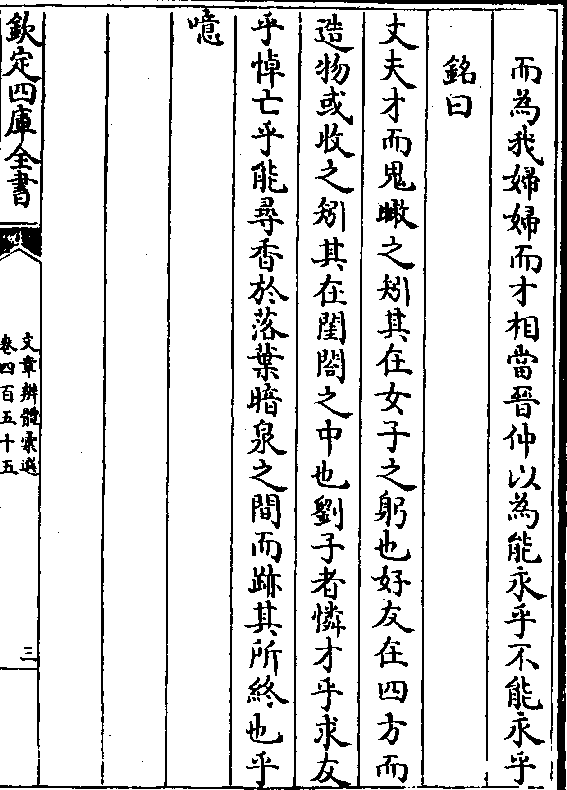 而為我婦婦而才相當晉仲以為能永乎不能永乎
銘曰
丈夫才而鬼瞰之矧其在女子之躬也好友在四方而
造物或收之矧其在閨閤之中也劉子者憐才乎求友
乎悼亡乎能尋香於落葉暗泉之間而跡其所終也乎
噫
欽定四庫全書
文章辨體彙選
卷四百五十五
三